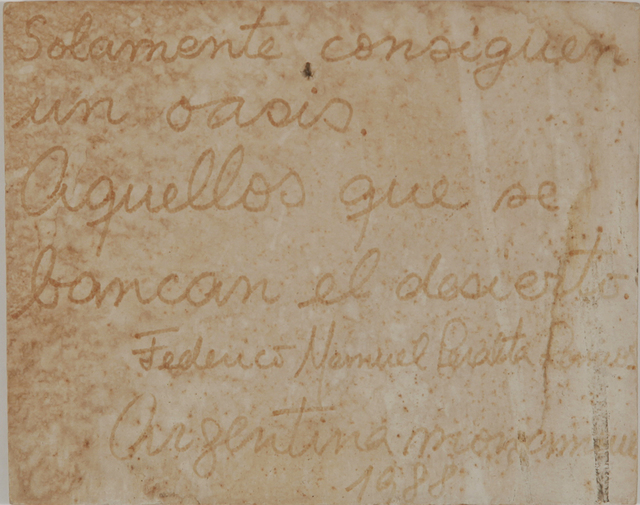 Solamente consiguen
un oasis.
Aquellos que se
bancan el desierto
Federico Manuel Peralta Ramos
Argentina
1988